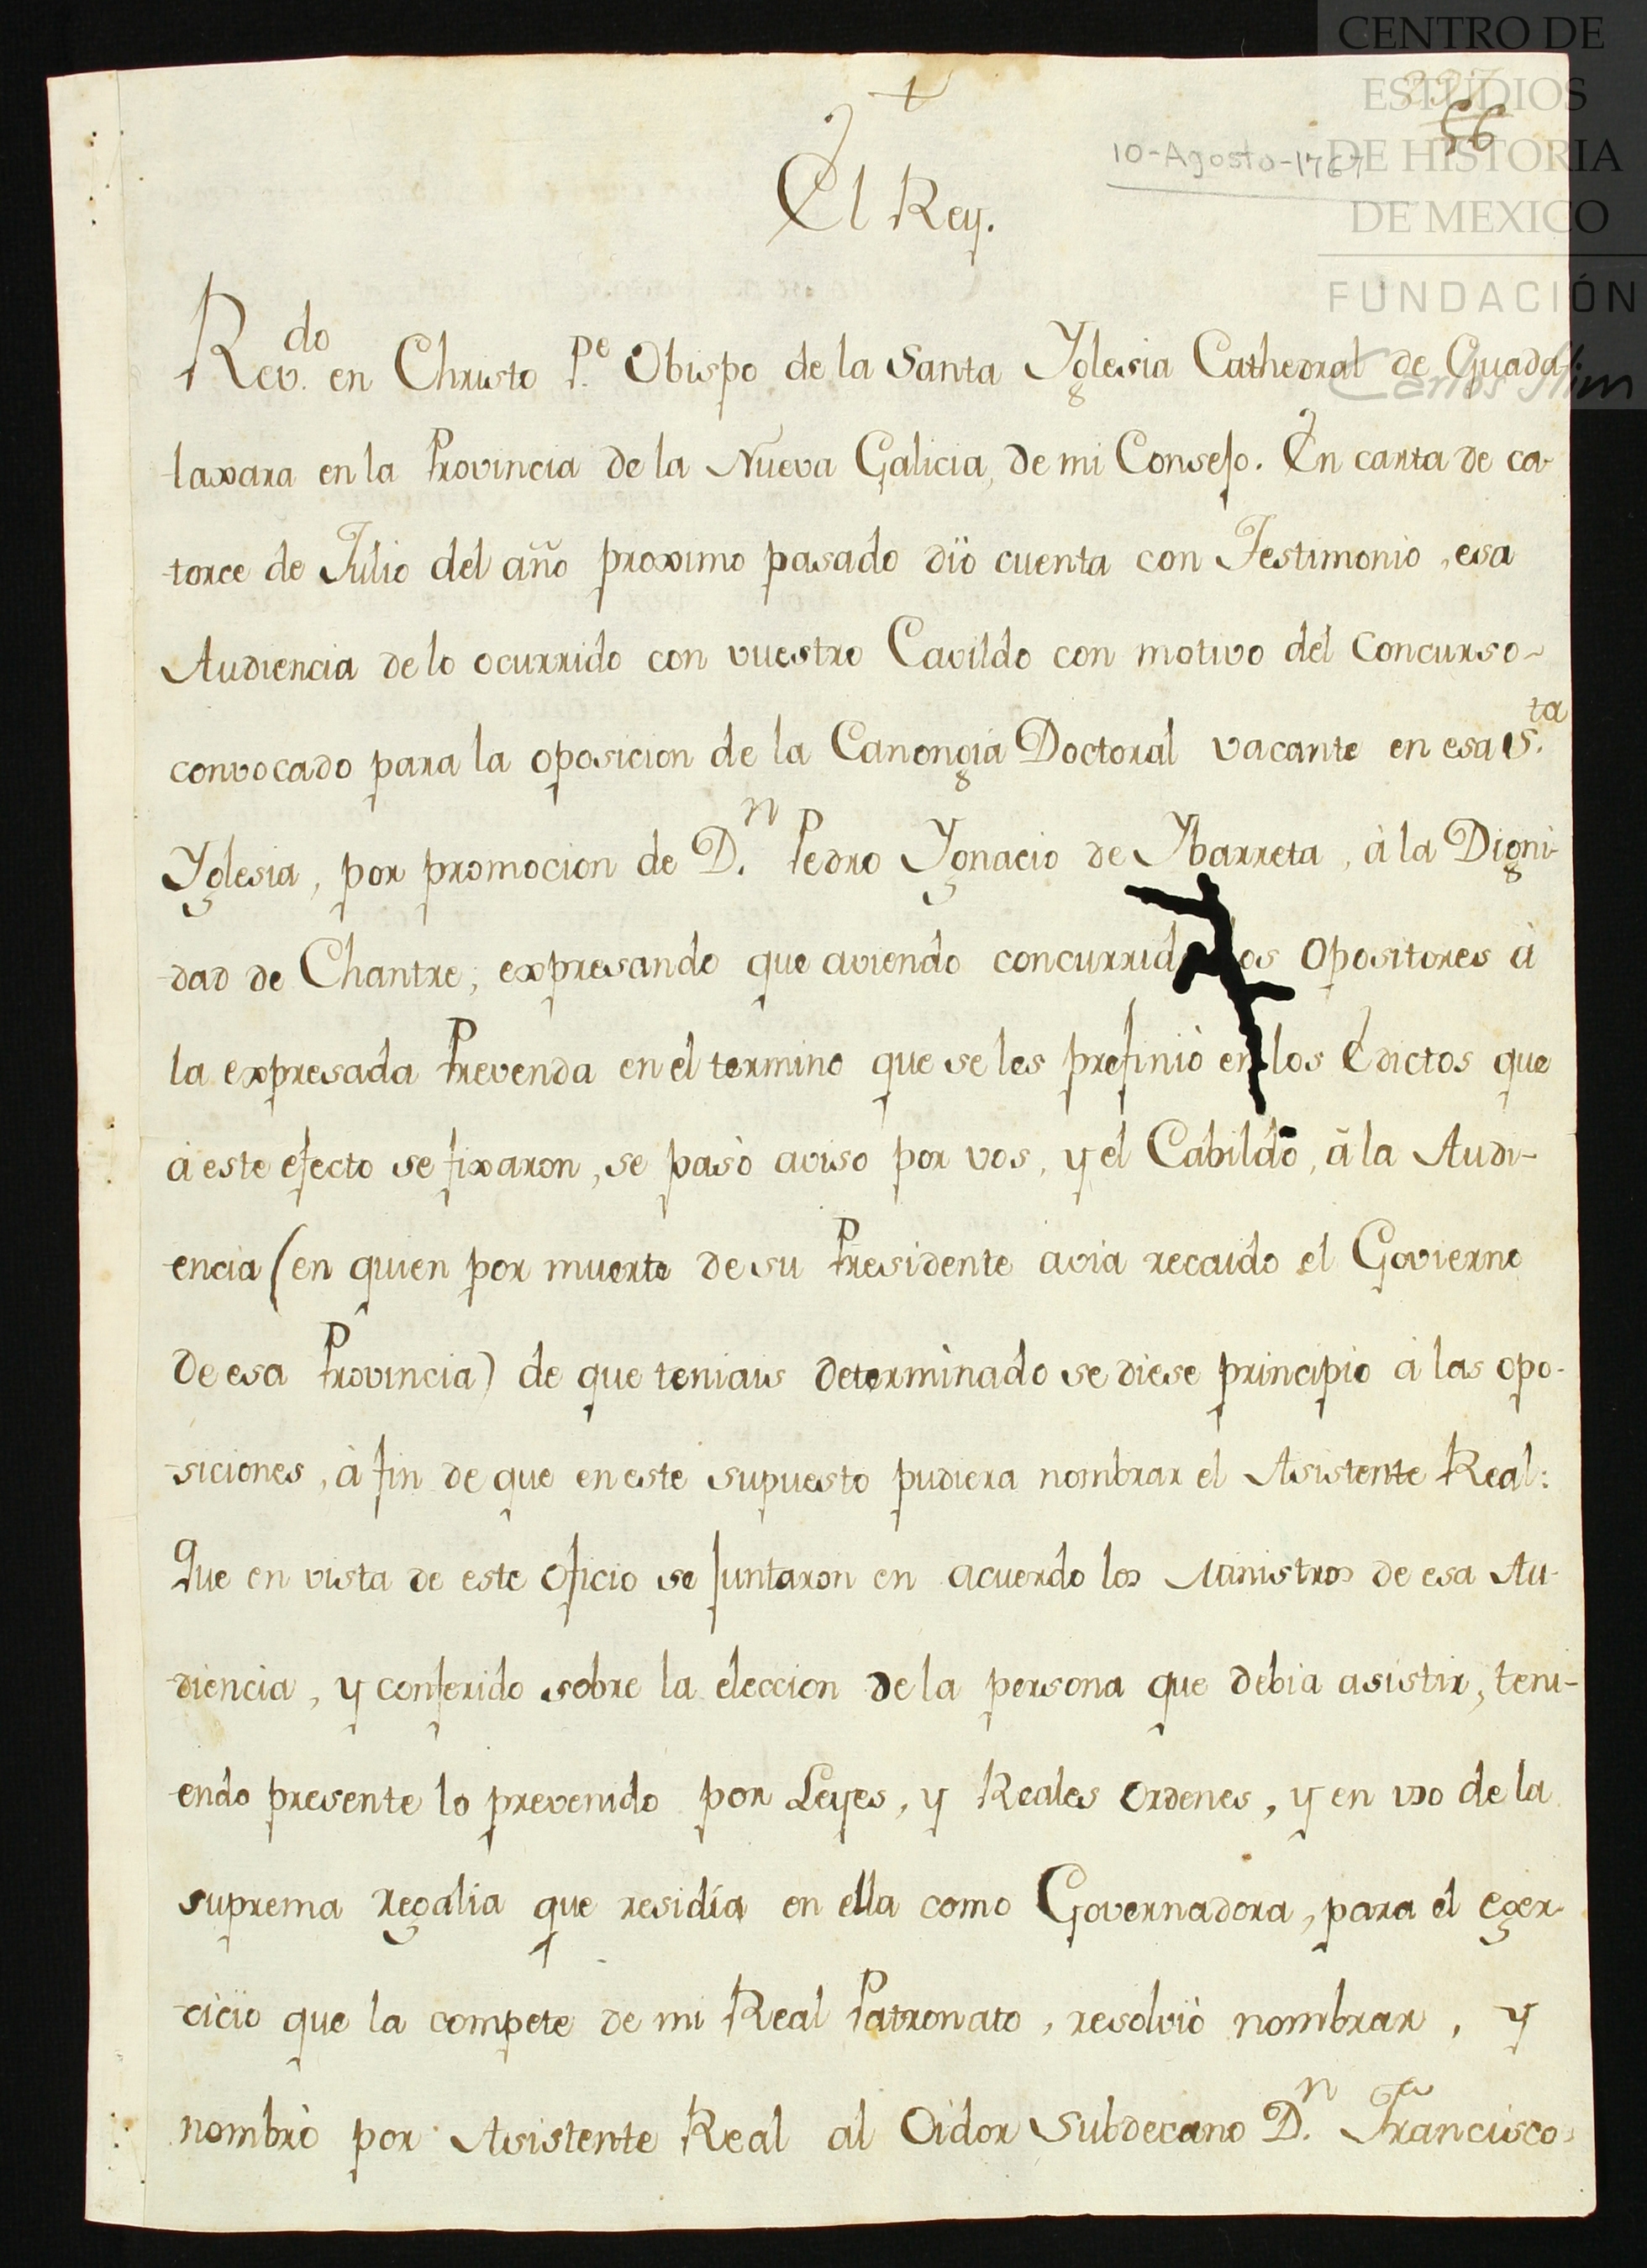 CENTRO DE
ESTUDIOS
DE HISTORIA
DE MEXICO
FUNDACIÓN
Carlos Slim
56
10-Agosto-1767
El Rey.
Rev.do en Christo P.e Obispo de la Santa Yglesia Cathedral de Guada-
laxara en la Provincia de la Nueva Galicia, de mi Consejo. En carta de ca-
torce de Julio del año proximo pasado diò cuenta con Testimonio, esa
Audiencia de lo ocurrido con vuestro Cavildo con motivo del Concurso-
convocado para la oposicion de la Canongia Doctoral vacante en esa S.ta
Yglesia, por promocion de D.n Pedro Ygnacio de Ybarreta, à la Digni-
dad de Chantre; expresando que aviendo concurrid os Opositores à
la expresada Prevenda en el termino que se les prefiniò en los Edictos que
à este efecto se fixaron, se pasò aviso por vos, y el Cabildo, à la Audi-
encia (en quien por muerte de su Presidente avia recaido el Govierno
de esa Provincia) de que teniais determinado se diese principio à las opo-
siciones, à fin de que en este supuesto pudiera nombrar el Asistente Real:
Que en vista de este Oficio se juntaron en acuerdo los Ministros de esa Au-
diencia, y conferido sobre la eleccion de la persona que debia asistir, teni-
endo presente lo prevenido por Leyes, y Reales Ordenes, y en uso de la
suprema regalia que residía en ella como Governadora, para el eger-
cicio que la compete de mi Real Patronato, resolviò nombrar, y
nombrò por Asistente Real al Oidor Subdecano D.n Francisco